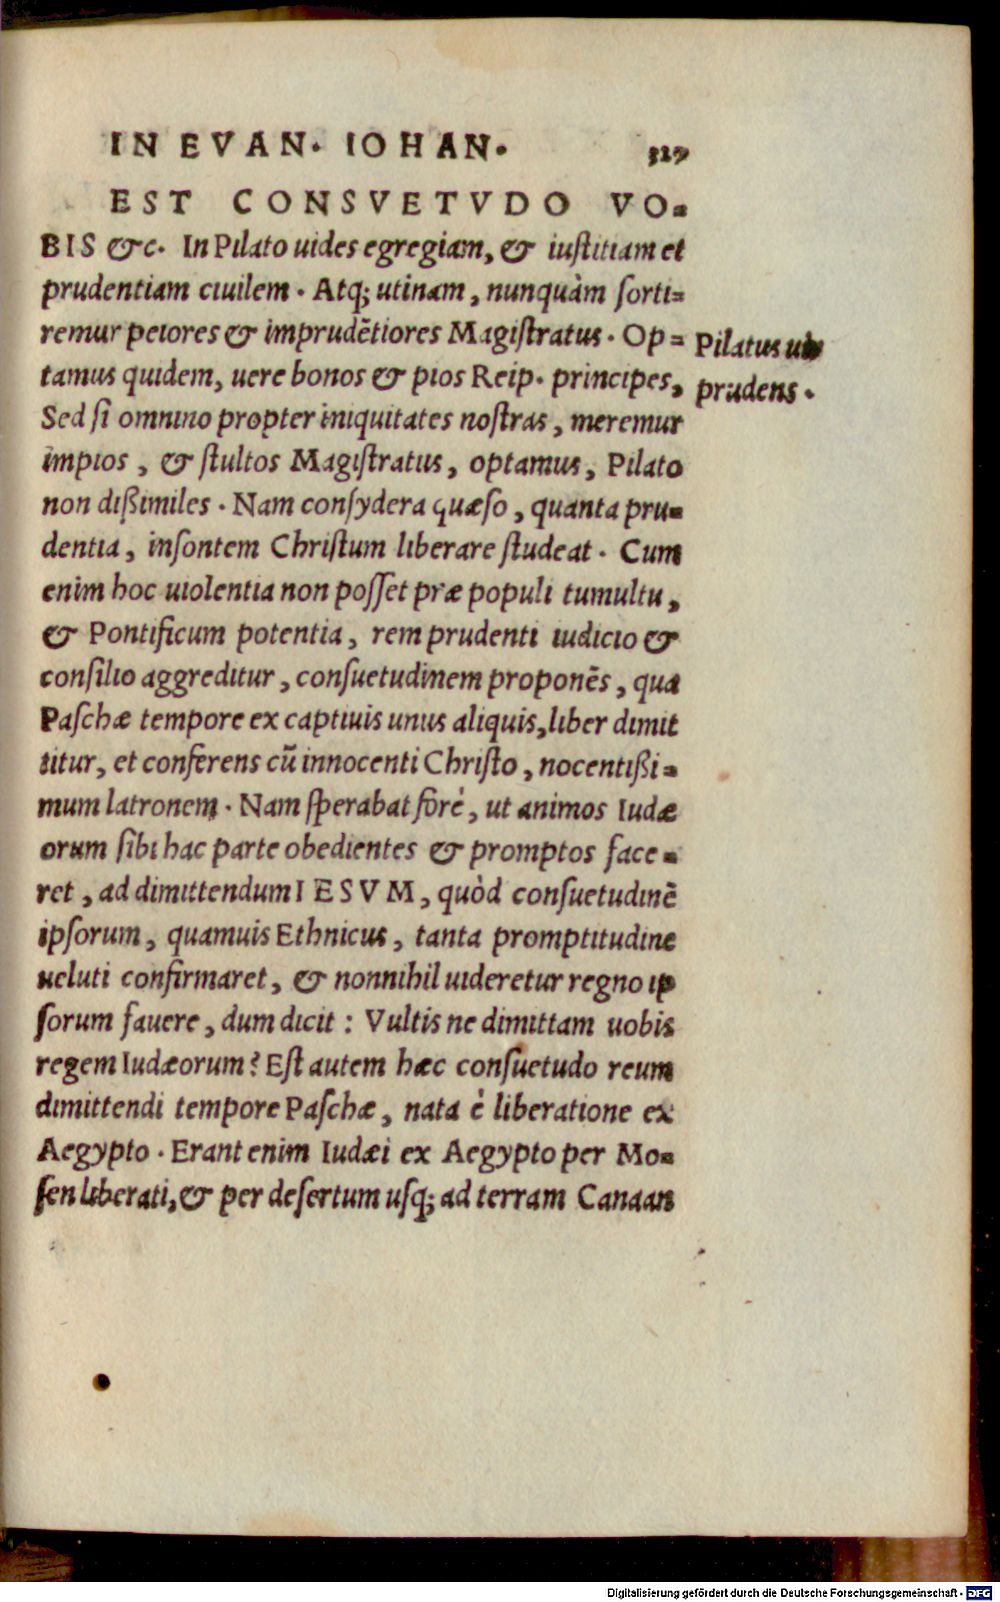 IN EVAN. IOHAN. 327
EST CONSVETVDO VO-
BIS &c. In Pilato uides egregiam, & iustitiam et
prudentiam ciuilem. Atq; utinam, nunquàm sorti-
remur peiores & imprudẽtiores Magistratus. Op-
tamus quidem, uere bonos & pios Reip. principes,
Sed si omnino propter iniquitates nostras, meremur
impios, & stultos Magistratus, optamus, Pilato
non dißimiles. Nam consydera quæso, quanta pru-
dentia, insontem Christum liberare studeat. Cum
enim hoc uiolentia non posset præ populi tumultu,
& Pontificum potentia, rem prudenti iudicio &
consilio aggreditur, consuetudinem proponẽs, qua
Paschæ tempore ex captiuis unus aliquis, liber dimit
titur, et conferens cũ innocenti Christo, nocentißi-
mum latronem. Nam sperabat forè, ut animos Iudæ
orum sibi hac parte obedientes & promptos face-
ret, ad dimittendum IESVM, quòd consuetudinẽ
ipsorum, quamuis Ethnicus, tanta promptitudine
ueluti confirmaret, & nonnihil uideretur regno ip
sorum fauere, dum dicit: Vultis ne dimittam uobis
regem Iudæorum? Est autem hæc consuetudo reum
dimittendi tempore Paschæ, nata è liberatione ex
Aegypto. Erant enim Iudæi ex Aegypto per Mo-
sen liberati, & per desertum usq; ad terram Canaan
Pilatus uir
prudens.
Digitalisierung gefördert durch die Deutsche Forschungsgemeinschaft - DFG